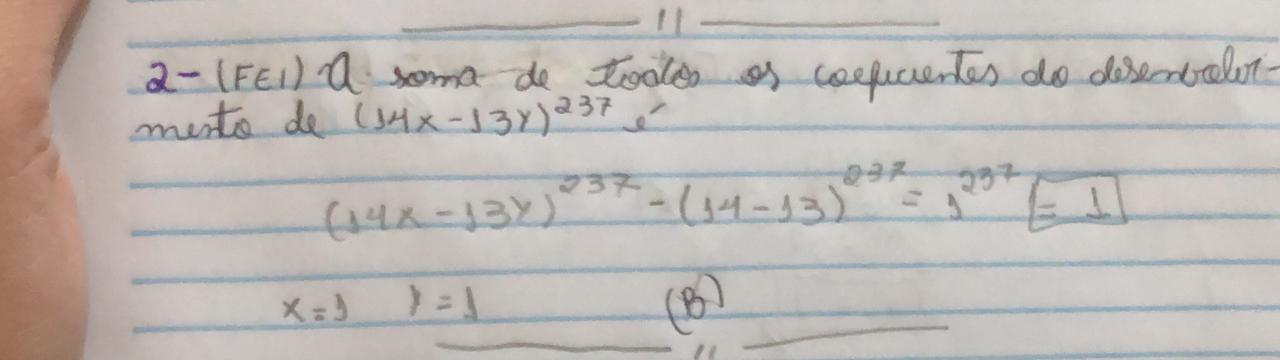 2-(FEI) A soma de todos os coeficientes do desenvolvi-
mento de (14x-13y)^237 é
(14x-13y)^237 - (14-13)^237 = 1^237 = 1
x=1 y=1 (B)